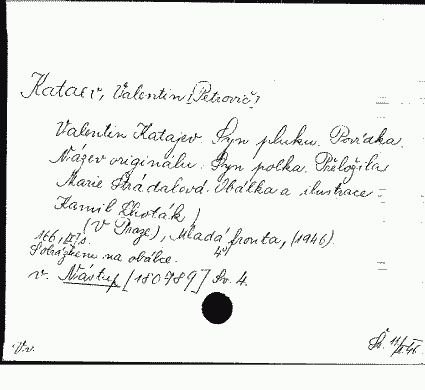 Kataev, Valentin [Petrovič]
Valentin Katajev. Syn pluku. Povídka.
Název originálu: Syn polka. Přeložila
Marie Strádalová. Obálka a ilustrace
Kamil Lhoták)
(V Praze), Mladá fronta, (1946).
166, 4°
S obrázkem na obálce.
v. Nástup [180989] Sv. 4.
V.v.